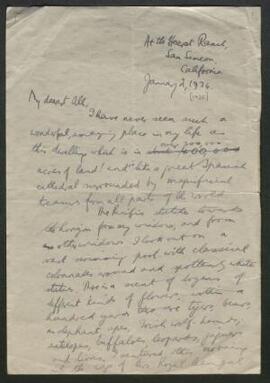 At the Hearst Ranch,
San Simeon,
California
January 2, 1936.
[1936]
My dearest Alb,
I have never seen such a
wonderful, amazing place in my life as
over 300,000
this dwelling which is in 400,000
acres of land! and "like a great Spanish
cathedral surrounded by magnificent
treasures from all parts of the world.
The Pacific stretches towards
the horizon from my windows, and from
another window I look out on a
vast swimming pool with classical
colonnades around and spotlessly white
statues. There is a scent of
different kinds of flowers, within a
hundred yards there are tigers, bears,
an elephant, apes, Irish wolf hounds,
antelopes, buffaloes, leopards, jaguars
and lions. I entered this morning
the cage of his Royal